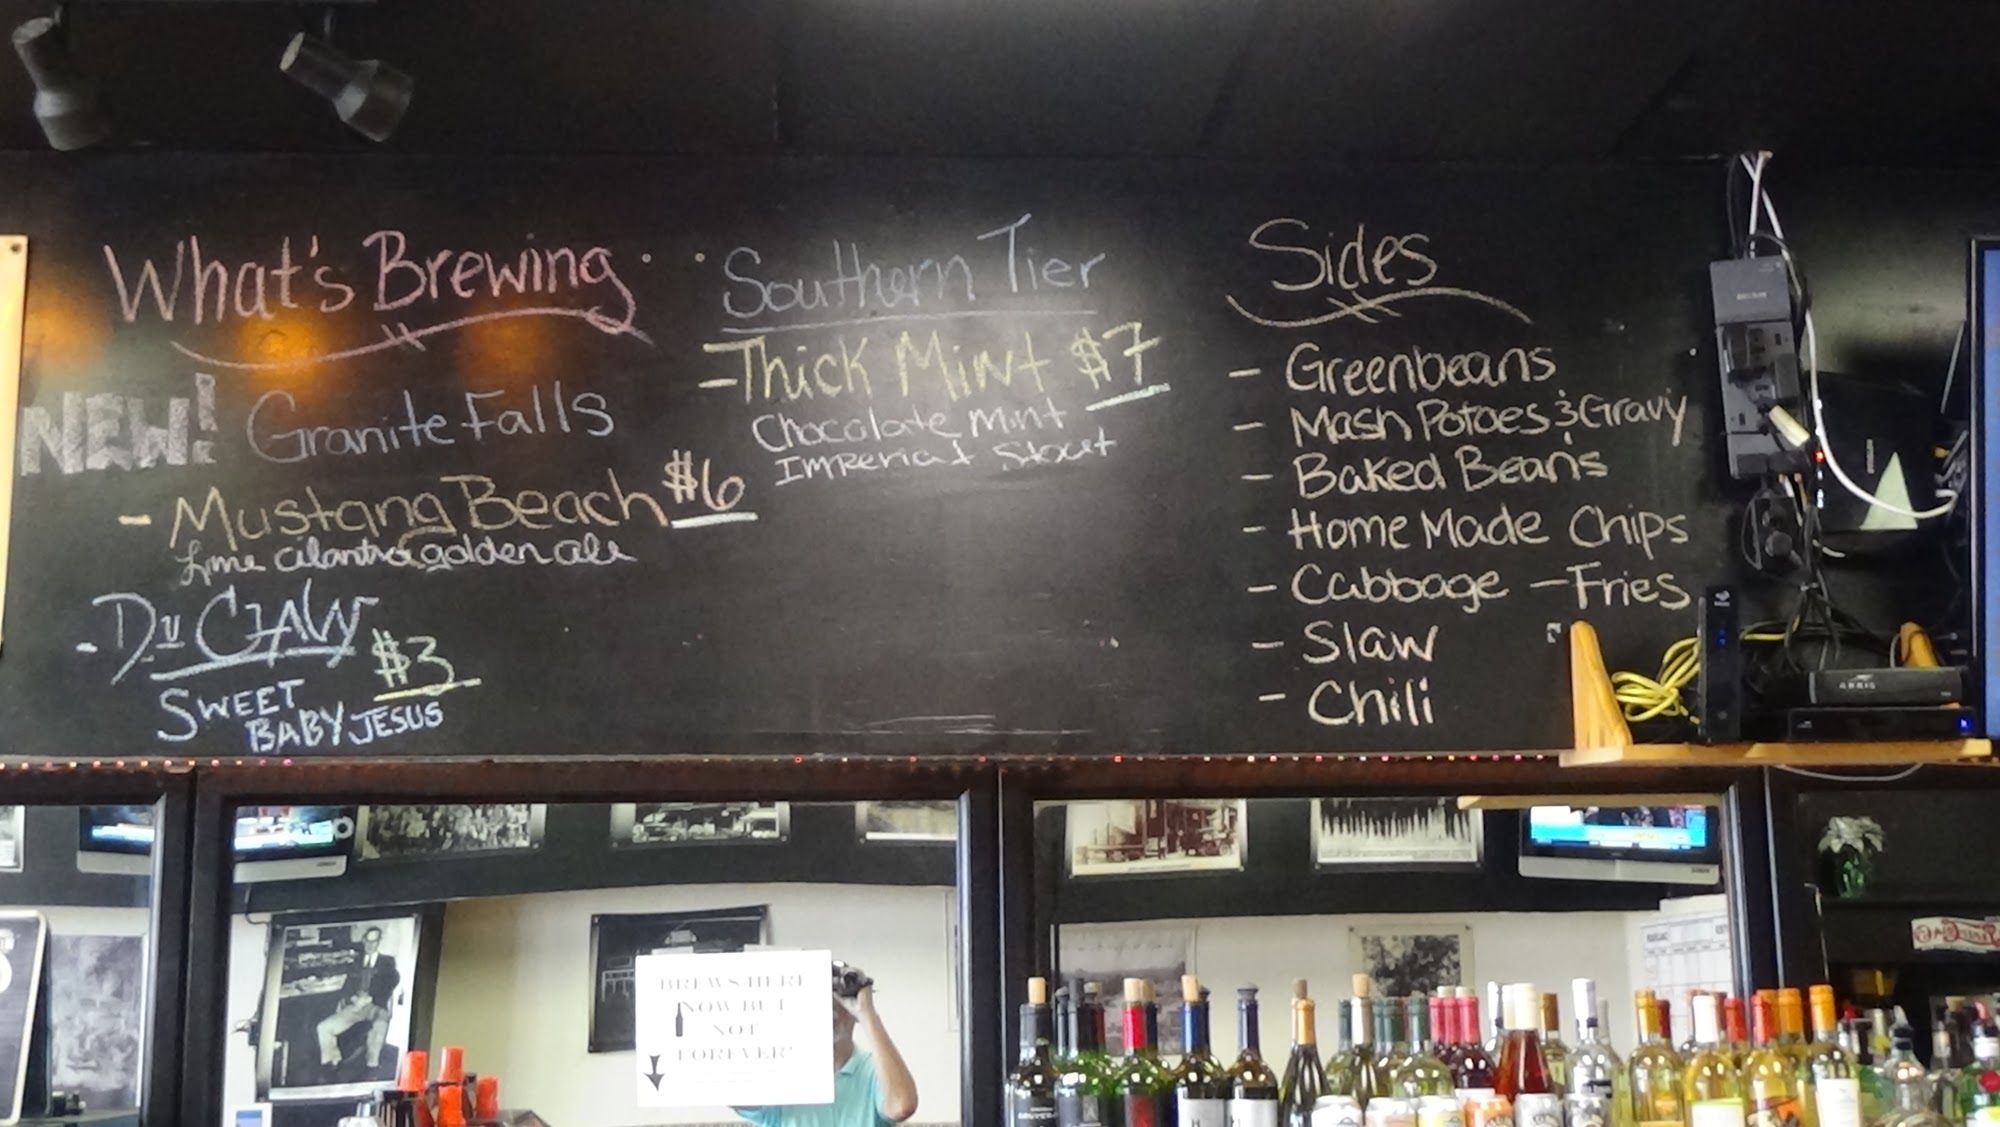 What's Brewing..
NEW! Granite Falls
- Mustang Beach $6
Lime cilantro golden ale
- Du CLAW $3
SWEET
BABY JESUS
Southern Tier
- Thick Mint $7
Chocolate Mint
Imperial Stout
Sides
- Greenbeans
- Mash Potoes & Gravy
- Baked Beans
- Home Made Chips
- Cabbage - Fries
- Slaw
- Chili
ARRIS
BREWS HERE
NOW BUT
NOT
FOREVER!